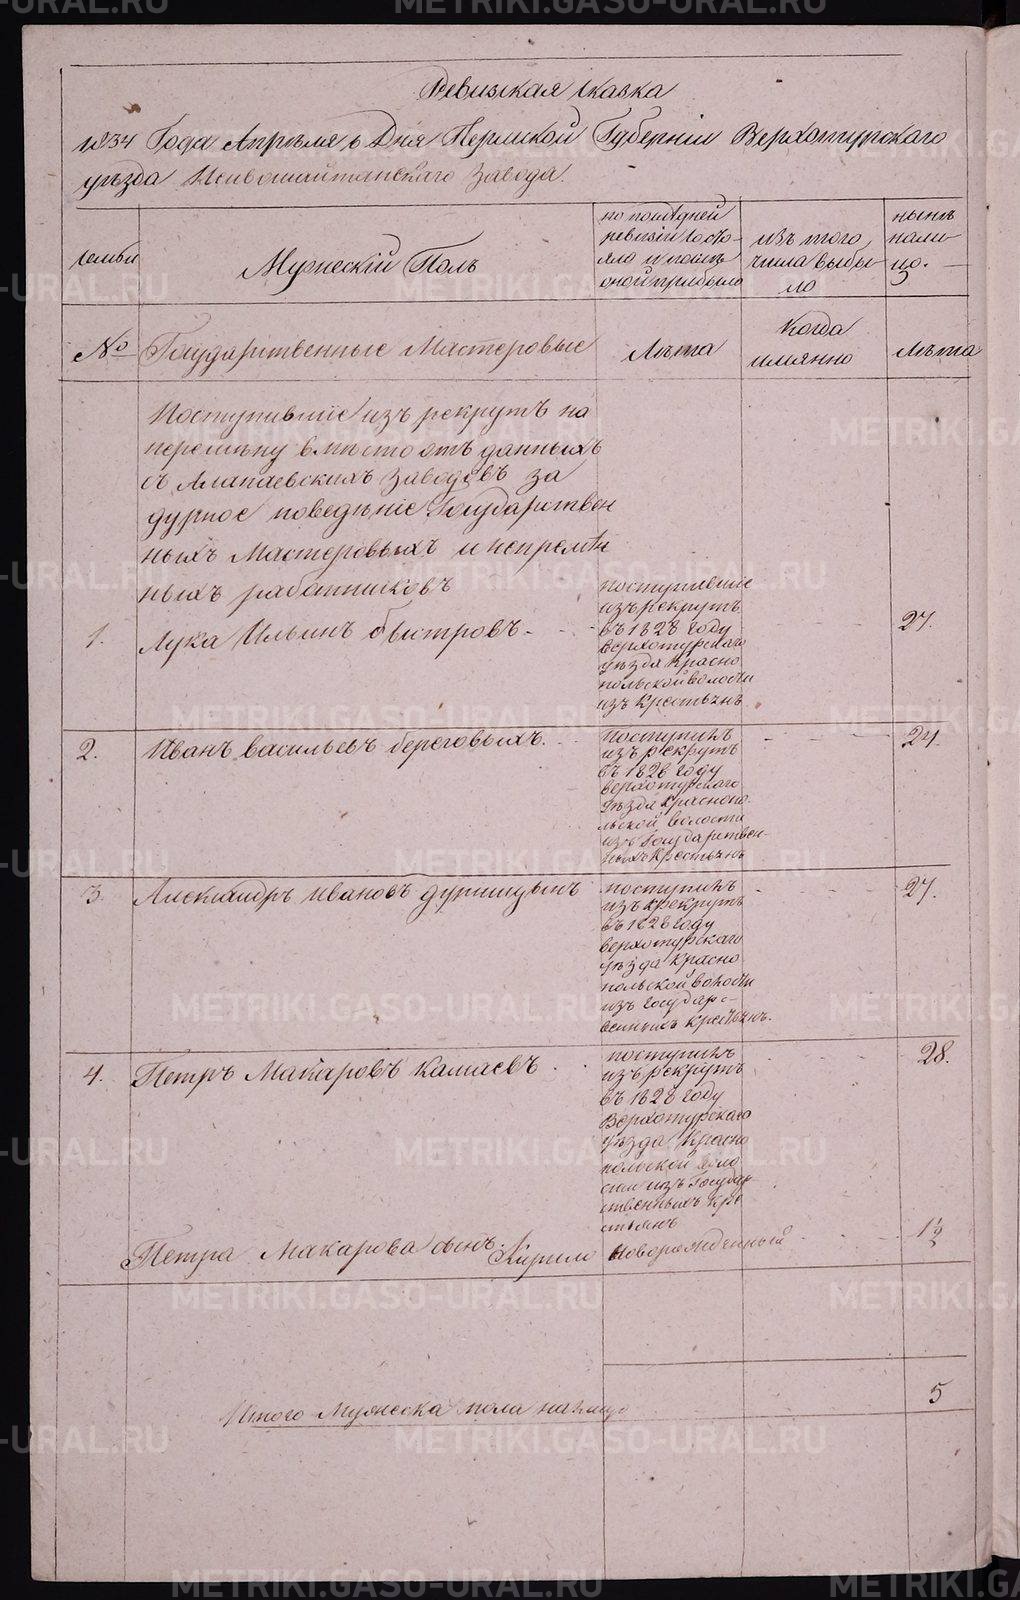 Ревизская сказка
1834 Года Апреля 6 Дня Пермской Губерніи Верхотурского
уѣзда Нейвошайтанскаго Завода.
семьи
Мужескій Полъ
по последней
ревизіи состо-
яло и после
оной прибыло
изъ того
числа выбы-
ло
нынѣ
нали-
цо.
№
Государственные Мастеровые
Лѣта
Когда
имянно
Лѣта
Поступившіе изъ рекрутъ на
перемѣну вмѣсто отъ данныхъ
съ Алапаевскихъ заводовъ за
дурное поведѣніе Государствен
ныхъ Мастеровыхъ и непремѣн
ныхъ работниковъ
1.
Лука Ильинъ быстровъ.
поступившіе
изъ рекрутъ
въ 1828 году
верхотурскаго
уѣзда Красно
польской волости
изъ крестьянъ
27.
2.
Иванъ васильевъ береговыхъ.
поступилъ
изъ рекрутъ
въ 1828 году
верхотурского
уѣзда Краснопо-
льской волости
изъ Государствен-
ныхъ Крестьянъ
24.
3.
Александръ ивановъ дурницынъ
поступилъ
изъ рекрутъ
въ 1828 году
верхотурскаго
уѣзда Красно
польской волости
изъ Государс-
венныхъ крестьянъ.
27.
4.
Петръ Макаровъ камаевъ.
поступилъ
изъ рекрутъ
въ 1828 году
Верхотурскаго
уѣзда Красно
польской воло
сти изъ Государ
ственныхъ кре
стьянъ
28.
Петра Макарова сынъ. Кирило
Новорожденный
1½
Итого Мужеска пола налицо
5
METRIKI.GASO-URAL.RU